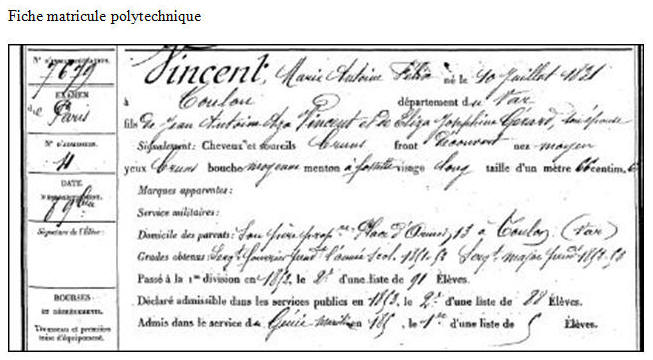 Fiche matricule polytechnique
N° D'IMMATRICULATION.
7679
EXAMEN
de Paris
N° D'ADMISSION.
4
DATE
Signature de l'Élève:
BOURSES
ET DÉGRÈVEMENTS.
Trousseau et première
mise d'équipement.
Vincent, Marie Antoine Félix né le 10 Juillet 1831
à Toulon département du Var
fils de Jean Antoine Aza Vincent et de Eliza Joséphine Gérard, son épouse
Signalement: Cheveux et sourcils bruns front découvert nez moyen
yeux bruns bouche moyenne menton à fossette visage long taille d'un mètre 66 centim.
Marques apparentes:
Service militaire:
Domicile des parents: Son père Place d'Armes, 13 à Toulon (Var)
Grades obtenus: Sergt fourrier pendt l'année scol. 1851-52 Sergt major pendt 1852-53
Passé à la 1re division en 1852, le 2e d'une liste de 91 Élèves.
Déclaré admissible dans les services publics en 1853, le 2e d'une liste de 88 Élèves.
Admis dans le service du Génie maritime en 185 , le 1er d'une liste de 5 Élèves.